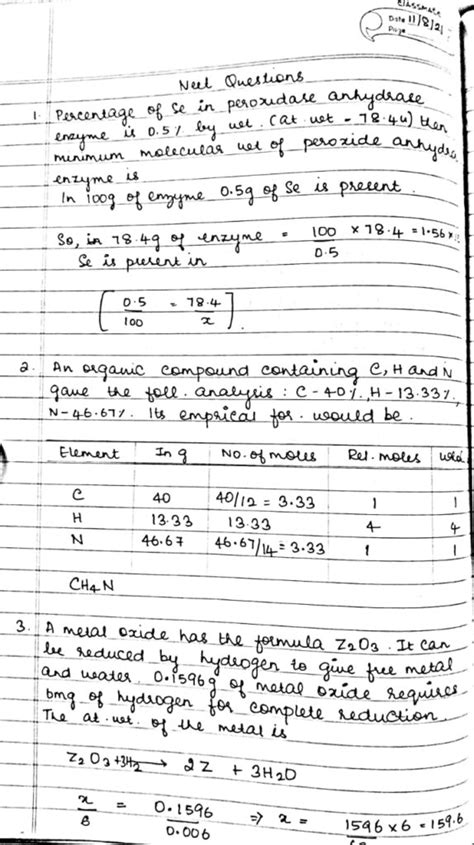 CLASSMATE
Date 11/8/21
Page
Neet Questions
1. Percentage of Se in peroxidase anhydrase
enzyme is 0.5% by wet. (at. wet - 78.4u) then
minimum molecular wet of peroxide anhydra
enzyme is
In 100g of enzyme 0.5g of Se is present.
So, in 78.4g of enzyme = 100/0.5 × 78.4 = 1.56 ×
Se is present in
[0.5/100 = 78.4/x].
2. An organic compound containing C, H and N
gave the foll. analysis : C - 40%, H - 13.33%,
N - 46.67%. Its emprical for. would be.
Element In g No. of moles Rel. moles
C 40 40/12 = 3.33 1 1
H 13.33 13.33 4 4
N 46.67 46.67/14 = 3.33 1 1
CH4N
3. A metal oxide has the formula Z2O3. It can
be reduced by hydrogen to give free metal
and water. 0.1596g of metal oxide requires
6mg of hydrogen for complete reduction.
The at. wt. of the metal is
Z2O3 + 3H2 → 2Z + 3H2O
x/8 = 0.1596/0.006 ⇒ x = 1596 × 6 = 159.6